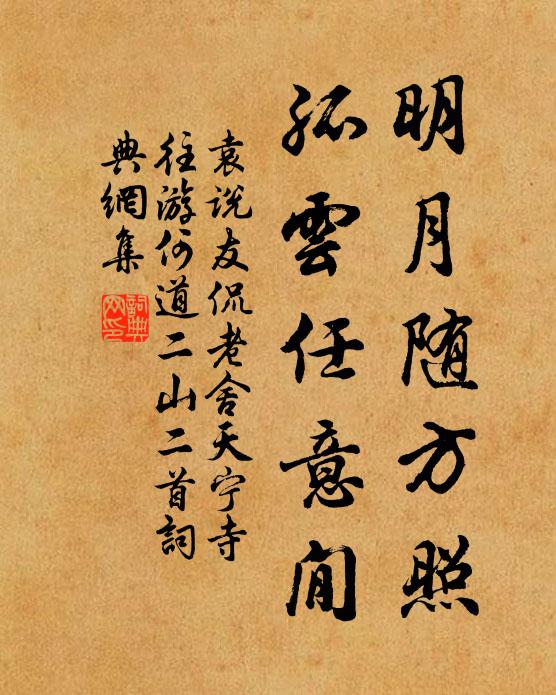 明月随方照
孤雲任意閒
袁说友侃老舍天宁寺
往游何道二山二首詞
典網集
詞典网印